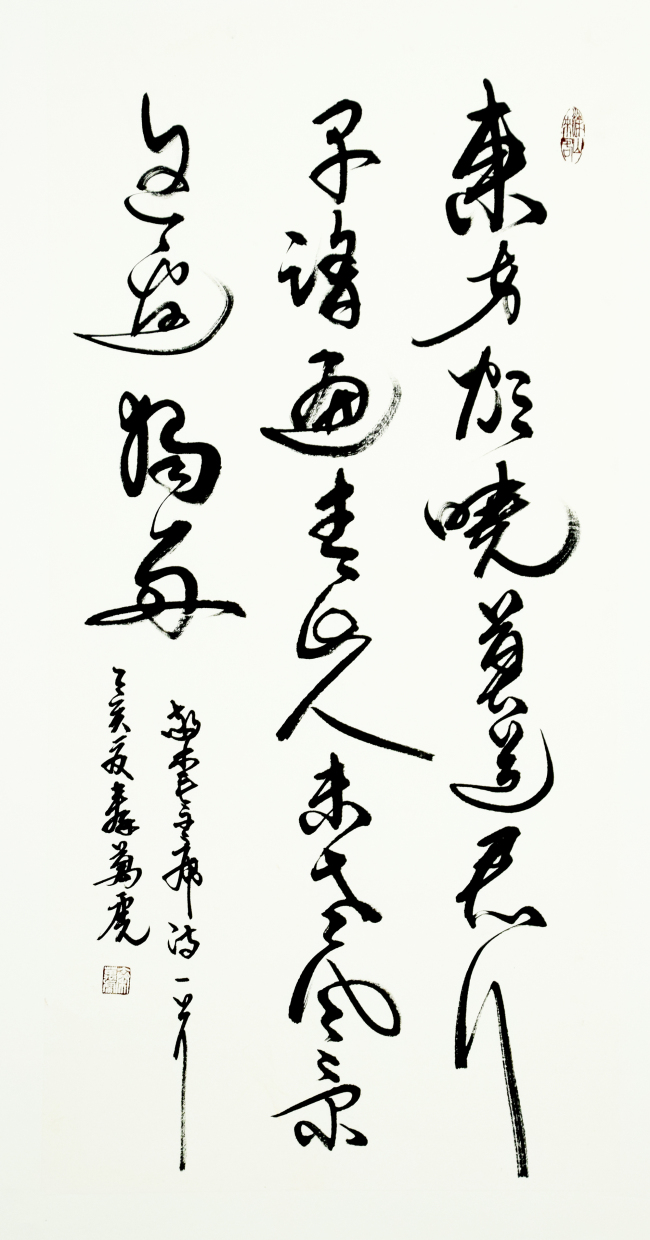 東方欲曉莫道君行
早踏遍青山人未老風景
這邊獨好
毛主席詩一首
己亥夏 萬虎